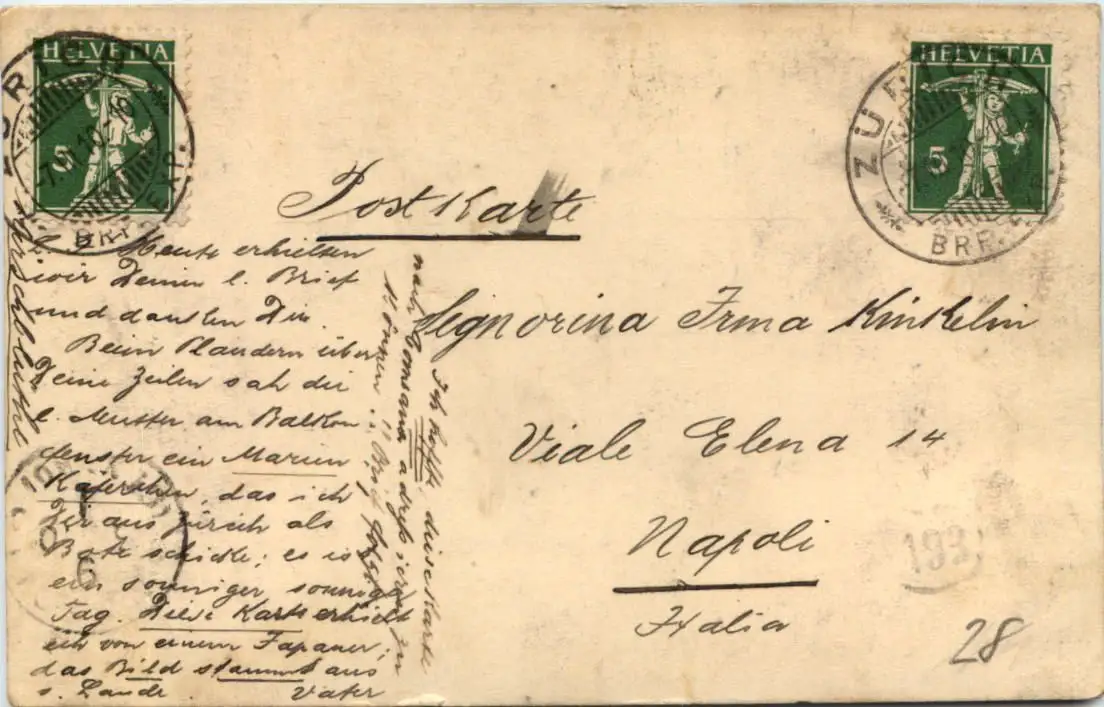 HELVETIA
5
ZÜRICH
BRF. EXP.
HELVETIA
5
ZÜRICH
BRF. EXP.
PostKarte
Heute erhielten
wir Deinen l. Brief
und danken Dir.
Beim Plaudern über
Deine Zeilen sah die
l. Mutter am Balkon
fenster ein Marien
Käferchen, das ich
Dir aus Zürich als
Bote schicke; es ist
ein sonniger sonniger
Tag. Diese Karte erhielt
ich von einem Japaner;
das Bild stammt aus
s. Lande. Vater
Ich hoffe diese Karte
nach adressieren zu
können. Brief folgt
Signorina Irma Kinkelin
Viale Elena 14
Napoli
Italia
193
28